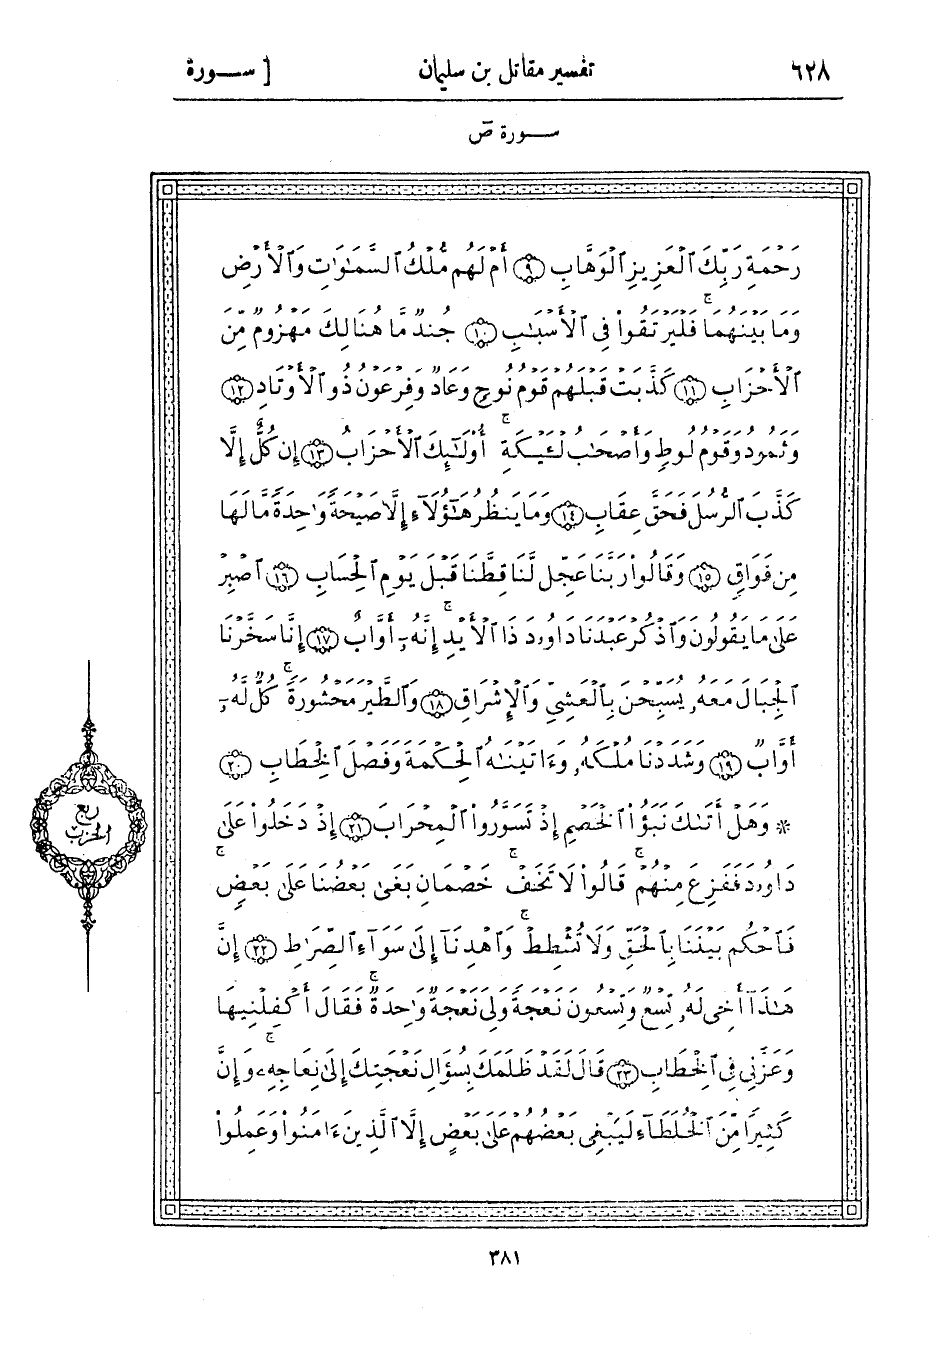 ٦٢٨
تفسير مقاتل بن سليمان
[ ســـورة
ســـورة صٓ
رَحۡمَةِ رَبِّكَ ٱلۡعَزِيزِ ٱلۡوَهَّابِ ۝٩ أَمۡ لَهُم مُّلۡكُ ٱلسَّمَٰوَٰتِ وَٱلۡأَرۡضِ
وَمَا بَيۡنَهُمَاۖ فَلۡيَرۡتَقُواْ فِي ٱلۡأَسۡبَٰبِ ۝١٠ جُندٞ مَّا هُنَالِكَ مَهۡزُومٞ مِّنَ
ٱلۡأَحۡزَابِ ۝١١ كَذَّبَتۡ قَبۡلَهُمۡ قَوۡمُ نُوحٖ وَعَادٞ وَفِرۡعَوۡنُ ذُو ٱلۡأَوۡتَادِ ۝١٢
وَثَمُودُ وَقَوۡمُ لُوطٖ وَأَصۡحَٰبُ لۡـَٔيۡكَةِۚ أُوْلَٰٓئِكَ ٱلۡأَحۡزَابُ ۝١٣ إِن كُلٌّ إِلَّا
كَذَّبَ ٱلرُّسُلَ فَحَقَّ عِقَابِ ۝١٤ وَمَا يَنظُرُ هَٰٓؤُلَآءِ إِلَّا صَيۡحَةٗ وَٰحِدَةٗ مَّا لَهَا
مِن فَوَاقٖ ۝١٥ وَقَالُواْ رَبَّنَا عَجِّل لَّنَا قِطَّنَا قَبۡلَ يَوۡمِ ٱلۡحِسَابِ ۝١٦ ٱصۡبِرۡ
عَلَىٰ مَا يَقُولُونَ وَٱذۡكُرۡ عَبۡدَنَا دَاوُۥدَ ذَا ٱلۡأَيۡدِۖ إِنَّهُۥٓ أَوَّابٌ ۝١٧ إِنَّا سَخَّرۡنَا
ٱلۡجِبَالَ مَعَهُۥ يُسَبِّحۡنَ بِٱلۡعَشِيِّ وَٱلۡإِشۡرَاقِ ۝١٨ وَٱلطَّيۡرَ مَحۡشُورَةٗۖ كُلّٞ لَّهُۥٓ
أَوَّابٞ ۝١٩ وَشَدَدۡنَا مُلۡكَهُۥ وَءَاتَيۡنَٰهُ ٱلۡحِكۡمَةَ وَفَصۡلَ ٱلۡخِطَابِ ۝٢٠
* وَهَلۡ أَتَىٰكَ نَبَؤُاْ ٱلۡخَصۡمِ إِذۡ تَسَوَّرُواْ ٱلۡمِحۡرَابَ ۝٢١ إِذۡ دَخَلُواْ عَلَىٰ
دَاوُۥدَ فَفَزِعَ مِنۡهُمۡۖ قَالُواْ لَا تَخَفۡۖ خَصۡمَانِ بَغَىٰ بَعۡضُنَا عَلَىٰ بَعۡضٖ
فَٱحۡكُم بَيۡنَنَا بِٱلۡحَقِّ وَلَا تُشۡطِطۡ وَٱهۡدِنَآ إِلَىٰ سَوَآءِ ٱلصِّرَٰطِ ۝٢٢ إِنَّ
هَٰذَآ أَخِي لَهُۥ تِسۡعٞ وَتِسۡعُونَ نَعۡجَةٗ وَلِيَ نَعۡجَةٞ وَٰحِدَةٞ فَقَالَ أَكۡفِلۡنِيهَا
وَعَزَّنِي فِي ٱلۡخِطَابِ ۝٢٣ قَالَ لَقَدۡ ظَلَمَكَ بِسُؤَالِ نَعۡجَتِكَ إِلَىٰ نِعَاجِهِۦۖ وَإِنَّ
كَثِيرٗا مِّنَ ٱلۡخُلَطَآءِ لَيَبۡغِي بَعۡضُهُمۡ عَلَىٰ بَعۡضٍ إِلَّا ٱلَّذِينَ ءَامَنُواْ وَعَمِلُواْ
ربع
الحزب
٣٨١